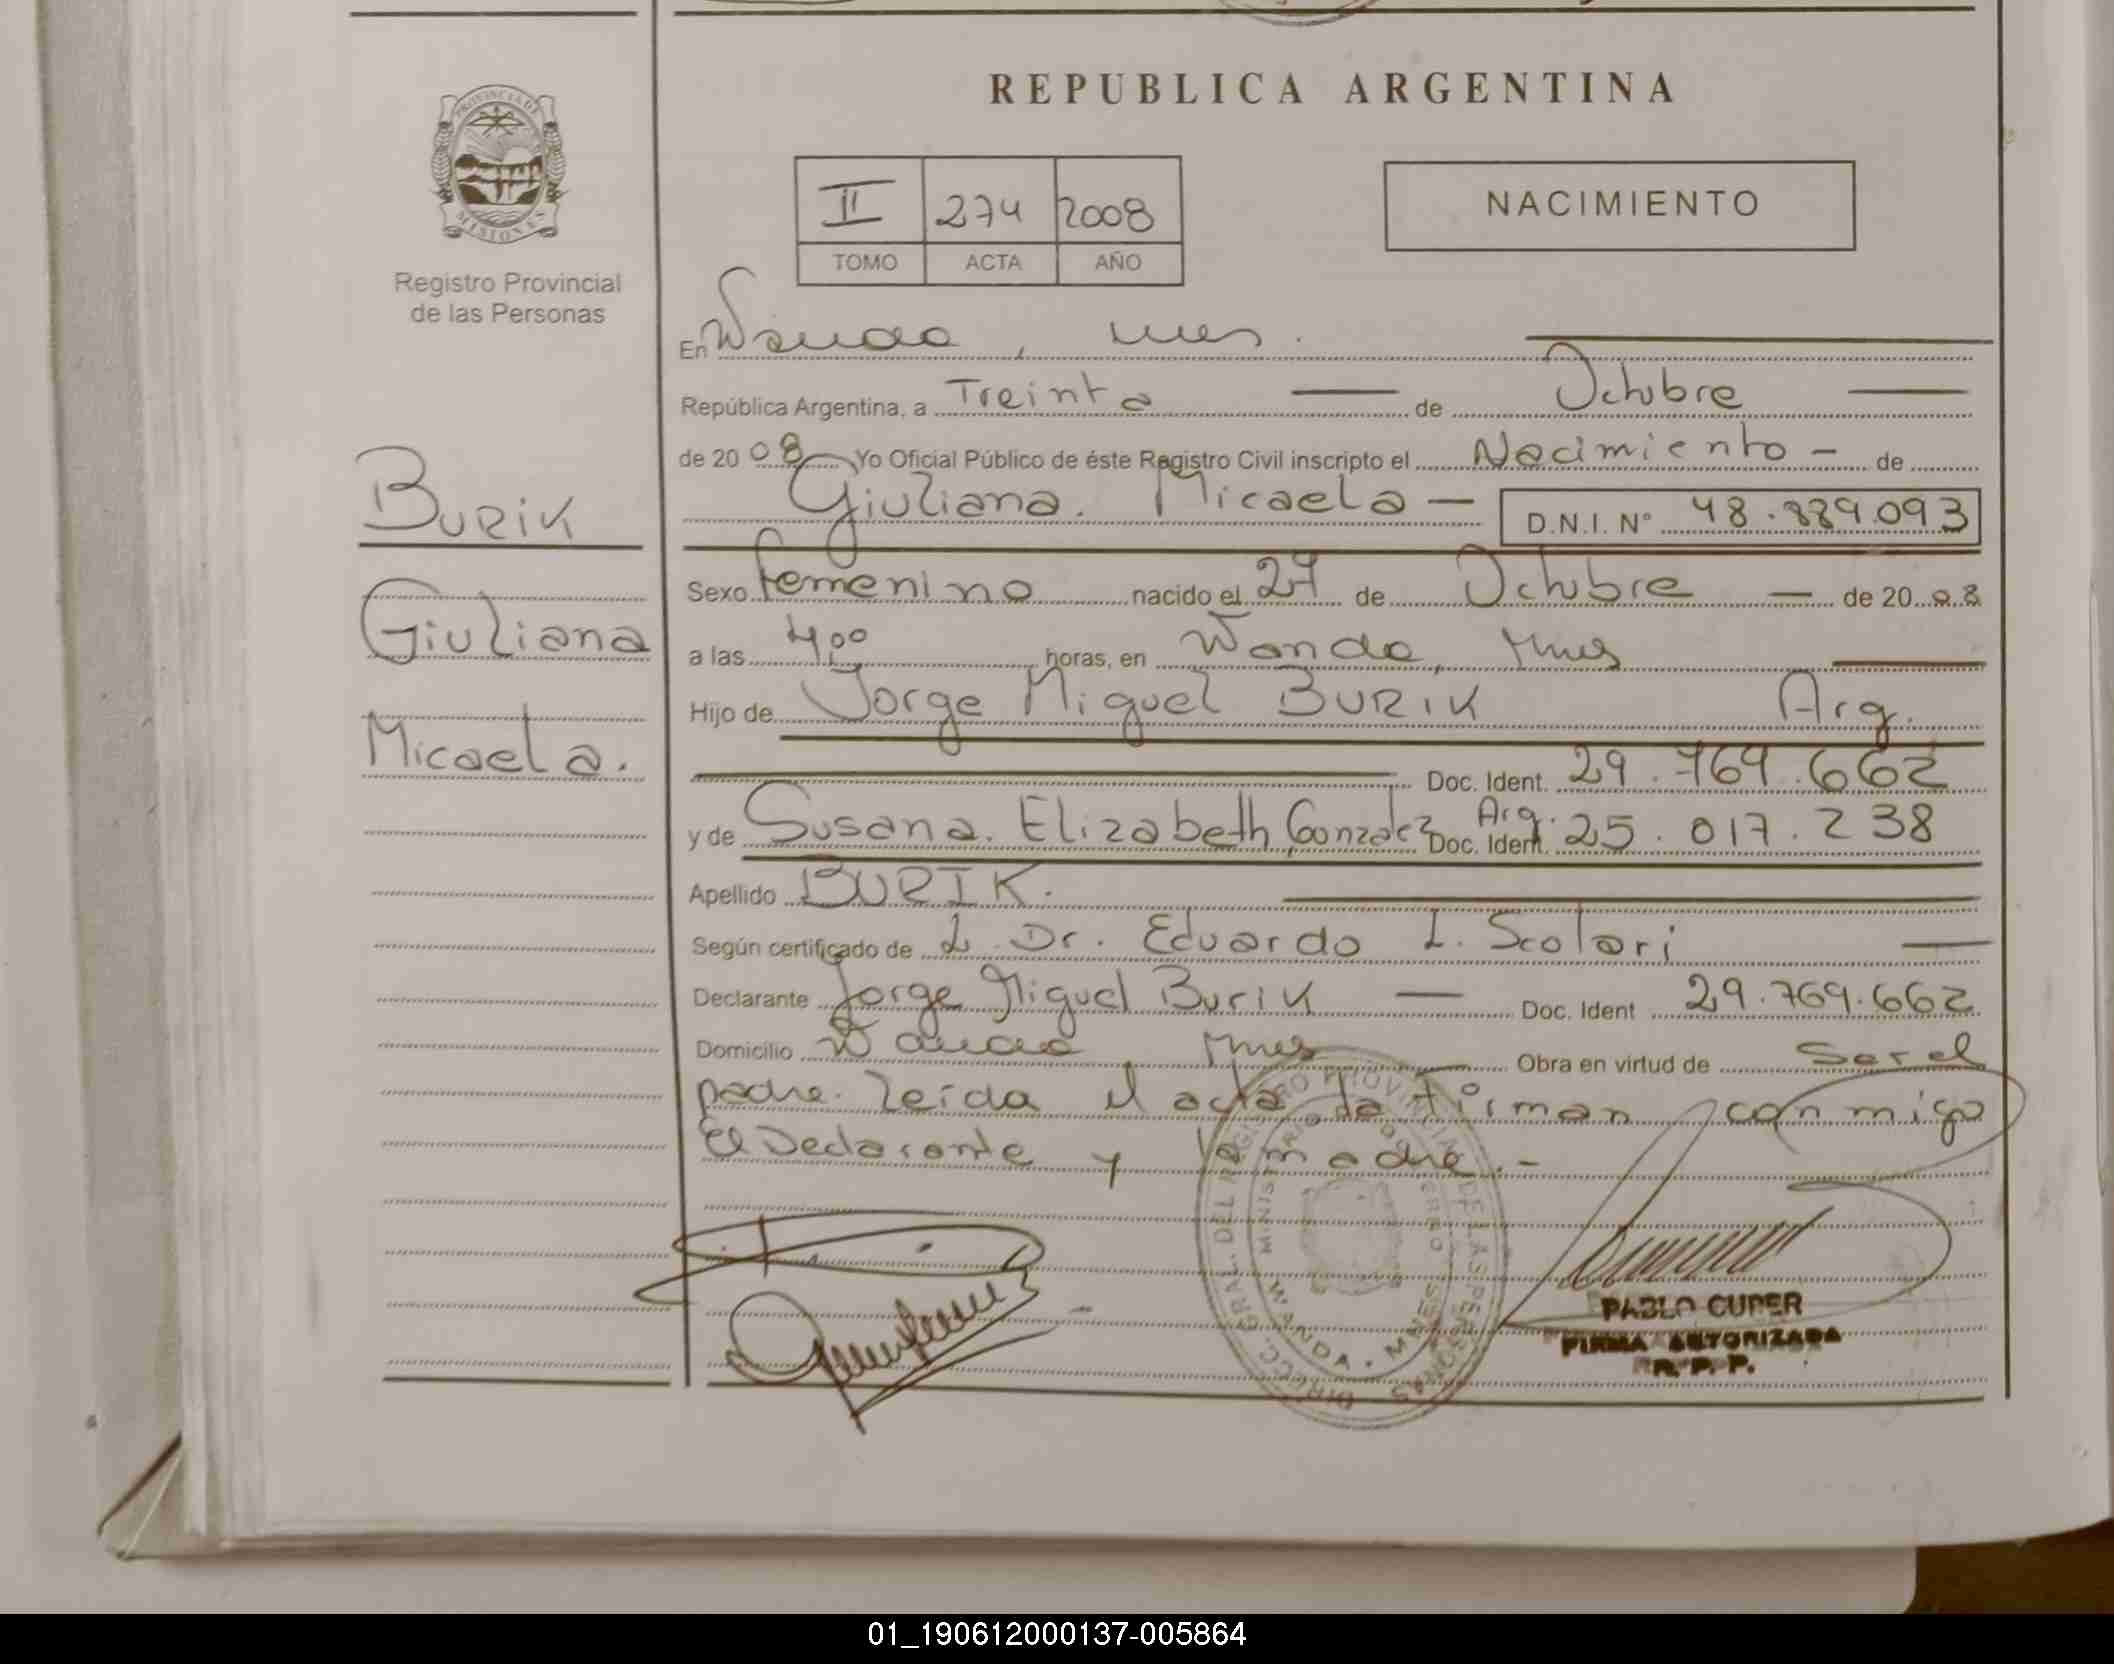 REPUBLICA ARGENTINA
PROVINCIA DE
MISIONES
Registro Provincial
de las Personas
II 274 2008
TOMO ACTA AÑO
NACIMIENTO
En Wanda, Mnes.
República Argentina, a Treinta — de Octubre —
de 20 08 Yo Oficial Público de éste Registro Civil inscripto el Nacimiento - de
Giuliana. Micaela — D.N.I. Nº 48.889.093
BURIK
Giuliana
Micaela.
Sexo femenino nacido el 27 de Octubre — de 20 08
a las 4,00 horas, en Wanda, Mnes
Hijo de Jorge Miguel BURIK Arg.
Doc. Ident. 29.769.662
y de Susana. Elizabeth Gonzalez Arg. Doc. Ident. 25.017.238
Apellido BURIK.
Según certificado de Dr. Eduardo I. Scolari —
Declarante Jorge Miguel Burik — Doc. Ident 29.769.662
Domicilio Wanda Mnes Obra en virtud de Ser el
padre. Leída el acta la firman conmigo
El Declarante y la madre.-
PABLO CUPER
FIRMA AUTORIZADA
R.P.P.
01_190612000137-005864